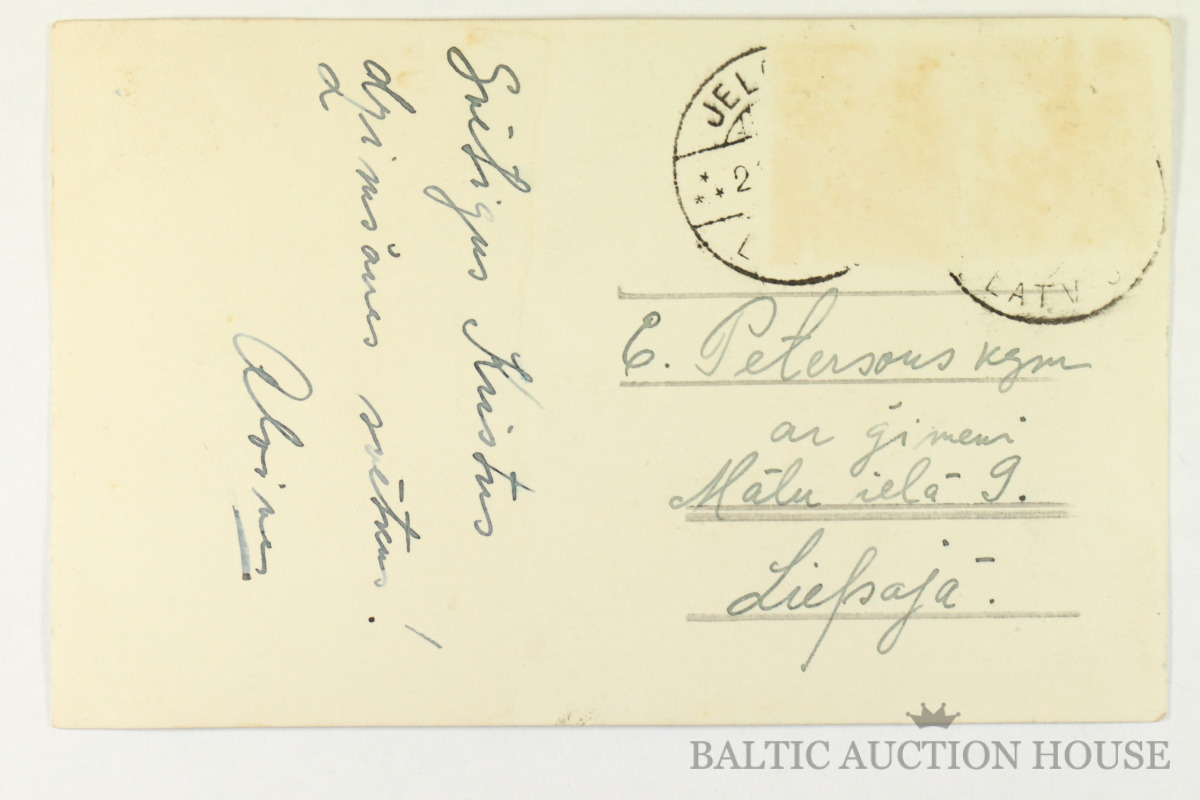 Svētīgus Kristus
dzimšanas svētkus!
Alvines
JEL
2
LATV
E. Petersons kgm
ar ģimeni
Mālu ielā 9.
Liepajā.
BALTIC AUCTION HOUSE